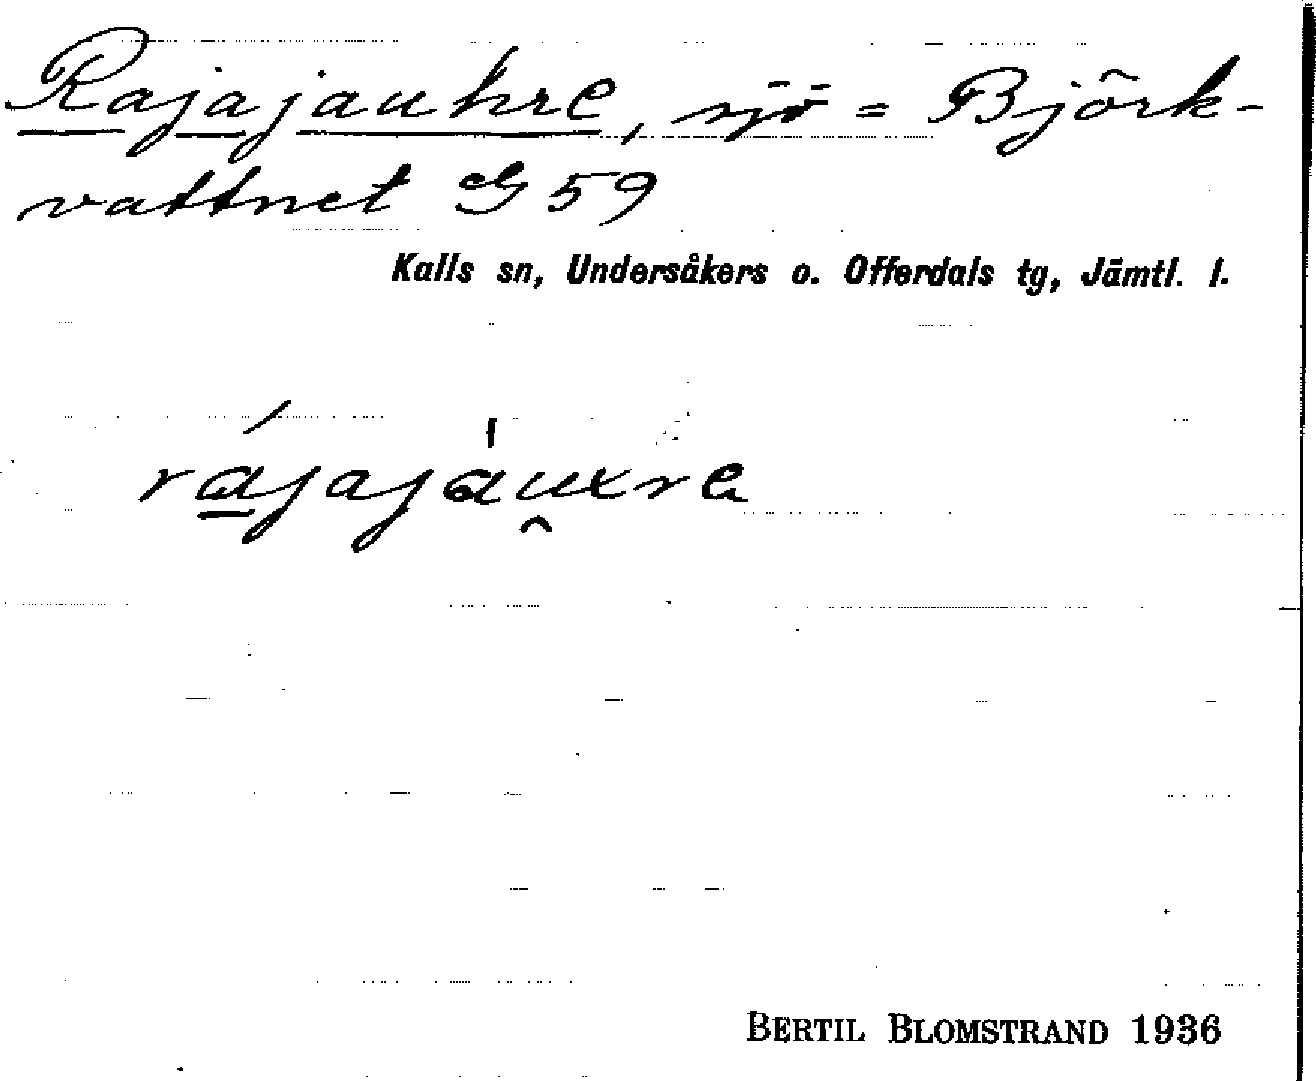 Rajajauhre, sjö = Björk-
vattnet G 59
Kalls sn, Undersåkers o. Offerdals tg, Jämtl. l.
rájajàuxre
BERTIL BLOMSTRAND 1936